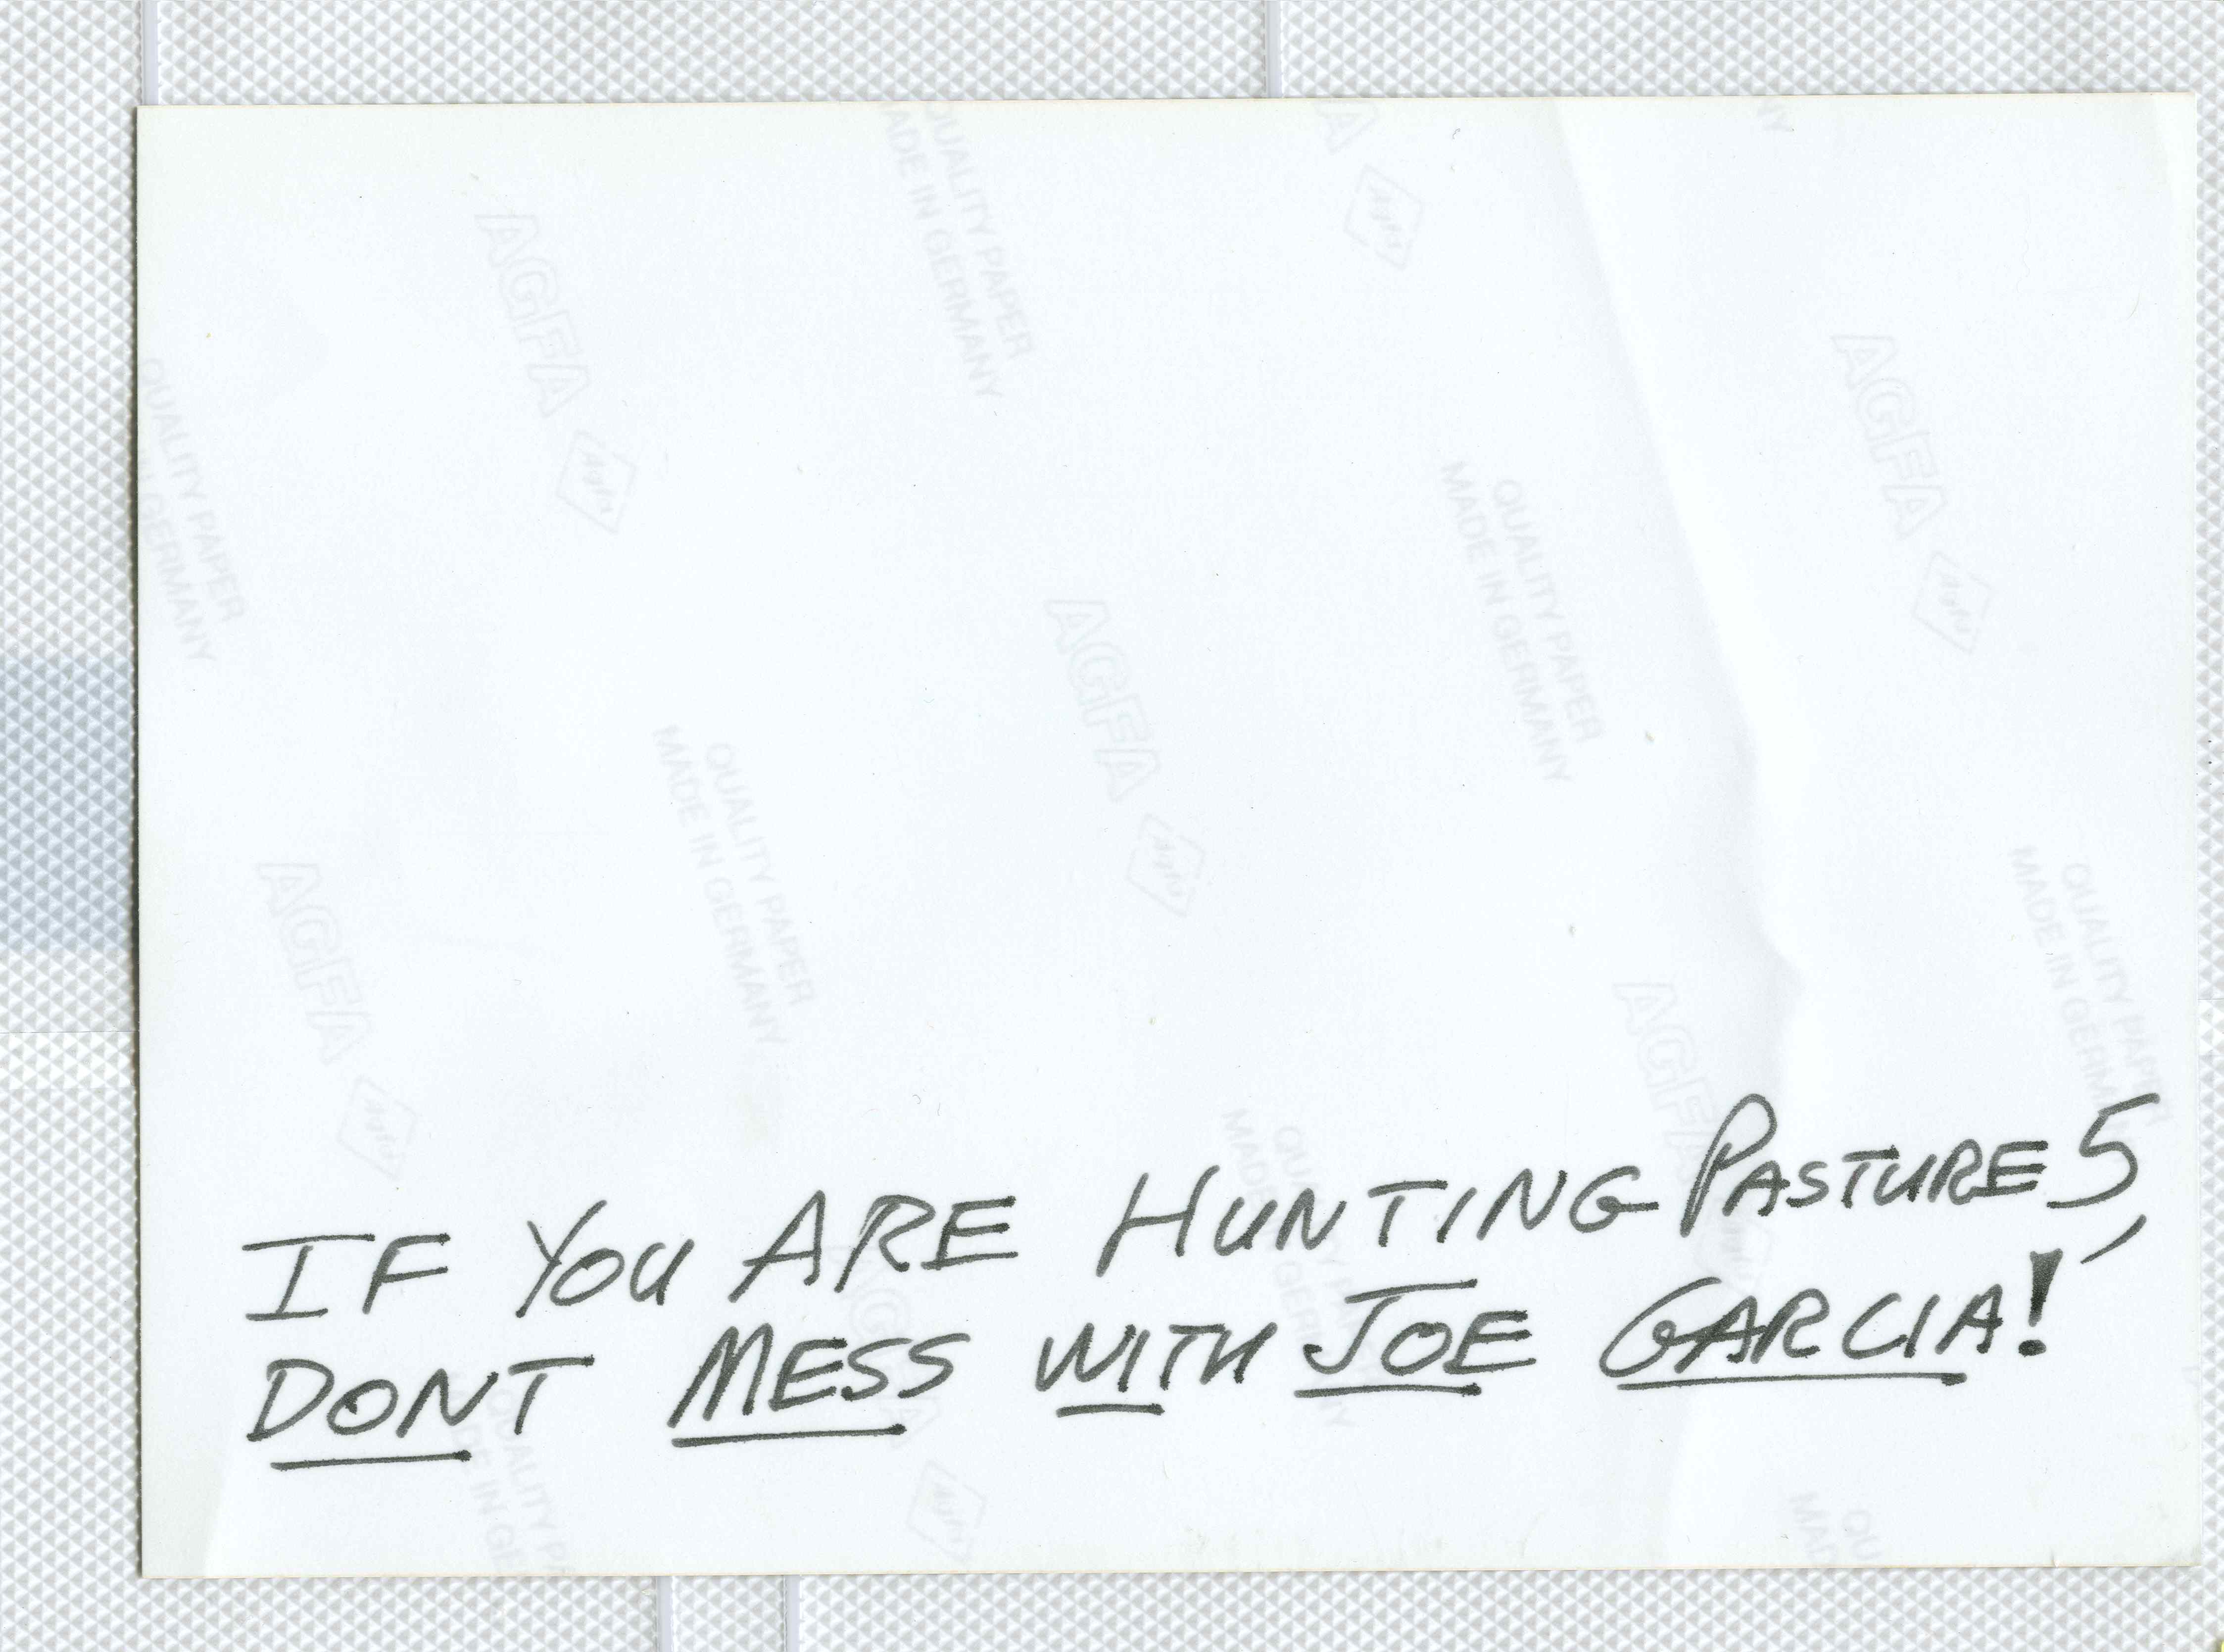 QUALITY PAPER
MADE IN GERMANY
AGFA
AGFA
QUALITY PAPER
GERMANY
AGFA
QUALITY PAPER
MADE IN GERMANY
AGFA
QUALITY PAPER
MADE IN GERMANY
AGFA
QUALITY PAPER
MADE IN GERMANY
AGFA
IF YOU ARE HUNTING PASTURE 5,
DONT MESS WITH JOE GARCIA!